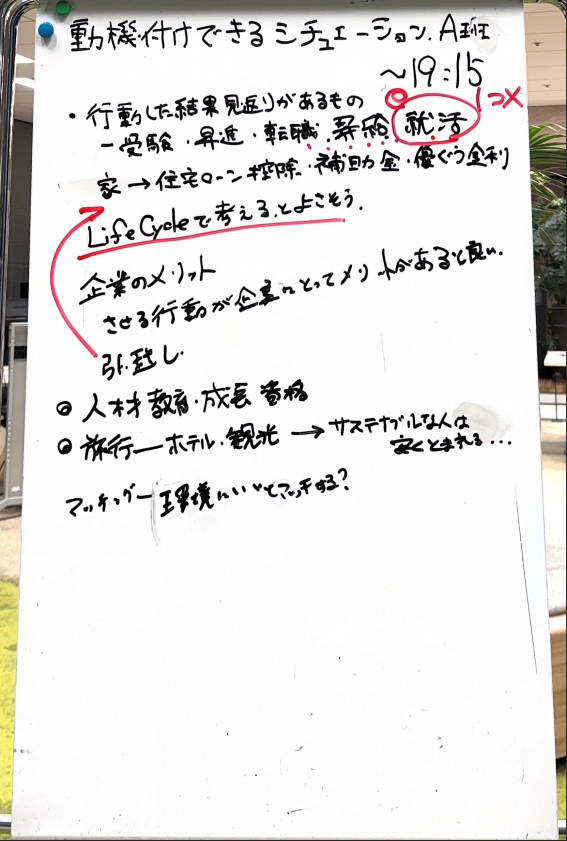 動機付けできるシチュエーション、A班
~19:15
・行動した結果見返りがあるもの
ー受験・昇進・転職、昇給 就活
家→住宅ローン控除・補助金・優ぐう金利
Life Cycleで考えるとよさそう。
企業のメリット
させる行動が企業にとってメリットがあると良い。
引越し.
◎人材教育・成長 資格
◎旅行ーホテル・観光→サステナブルな人は
安くとまれる…
マッチングー環境にいい人とマッチする?